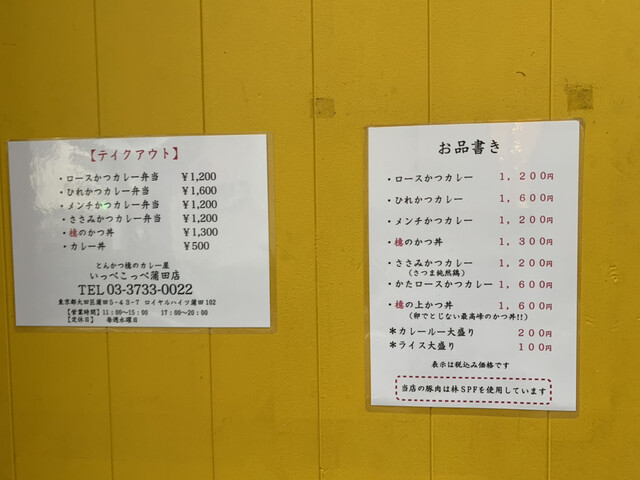 【テイクアウト】
・ロースかつカレー弁当 ¥1,200
・ひれかつカレー弁当 ¥1,600
・メンチかつカレー弁当 ¥1,200
・ささみかつカレー弁当 ¥1,200
・檍のかつ丼 ¥1,300
・カレー丼 ¥500
とんかつ檍のカレー屋
いっぺこっぺ蒲田店
TEL 03-3733-0022
東京都大田区蒲田5-43-7 ロイヤルハイツ蒲田102
【営業時間】11:00~15:00 17:00~20:00
【定休日】 毎週水曜日
お品書き
・ロースかつカレー 1,200円
・ひれかつカレー 1,600円
・メンチかつカレー 1,200円
・檍のかつ丼 1,300円
・ささみかつカレー 1,200円
(さつま純然鶏)
・かたロースかつカレー 1,600円
・檍の上かつ丼 1,600円
(卵でとじない最高峰のかつ丼!!)
*カレールー大盛り 200円
*ライス大盛り 100円
表示は税込み価格です
当店の豚肉は林SPFを使用しています